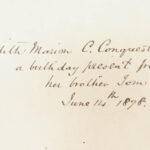 dith Marion C. Conquest
a birthday present fro
her brother Tom
June 14th 1898.